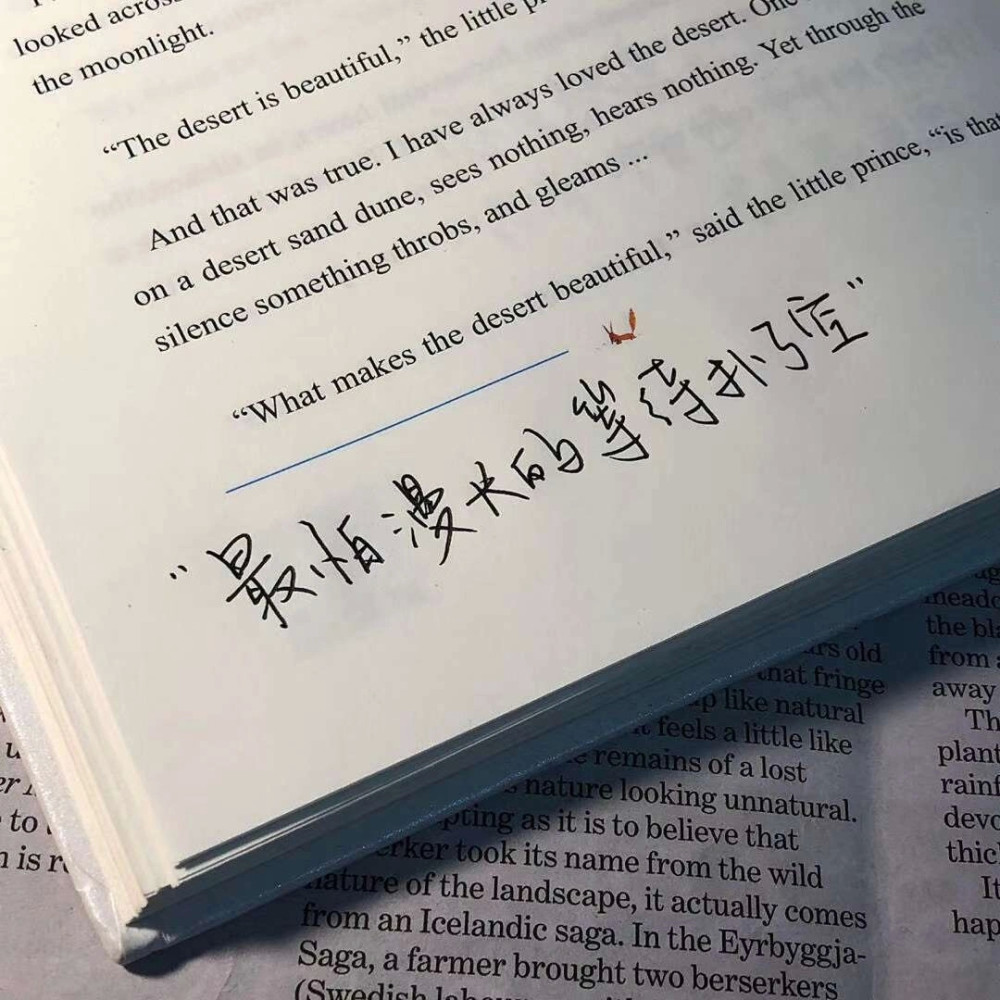 looked acros
the moonlight.
“The desert is beautiful,” the little p
And that was true. I have always loved the desert. One
on a desert sand dune, sees nothing, hears nothing. Yet through the
silence something throbs, and gleams ...
“What makes the desert beautiful,” said the little prince, “is that
“最怕漫长的等待扑了空”
urs old
that fringe
up like natural
it feels a little like
e remains of a lost
s nature looking unnatural.
pting as it is to believe that
erker took its name from the wild
nature of the landscape, it actually comes
from an Icelandic saga. In the Eyrbyggja-
Saga, a farmer brought two berserkers
(Swedish
meade
the bl
from a
away
Th
plant
rainf
devo
thic
It
hap
u
er
to
n is r